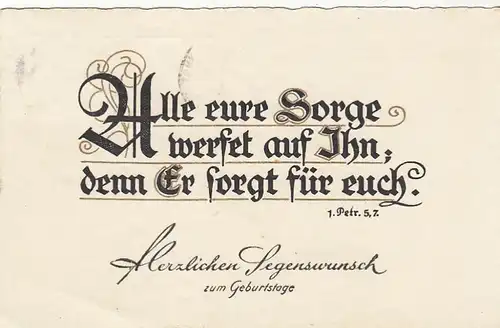 Alle eure Sorge
werfet auf Ihn;
denn Er sorgt für euch.
1. Petr. 5,7.
Herzlichen Segenswunsch
zum Geburtstage